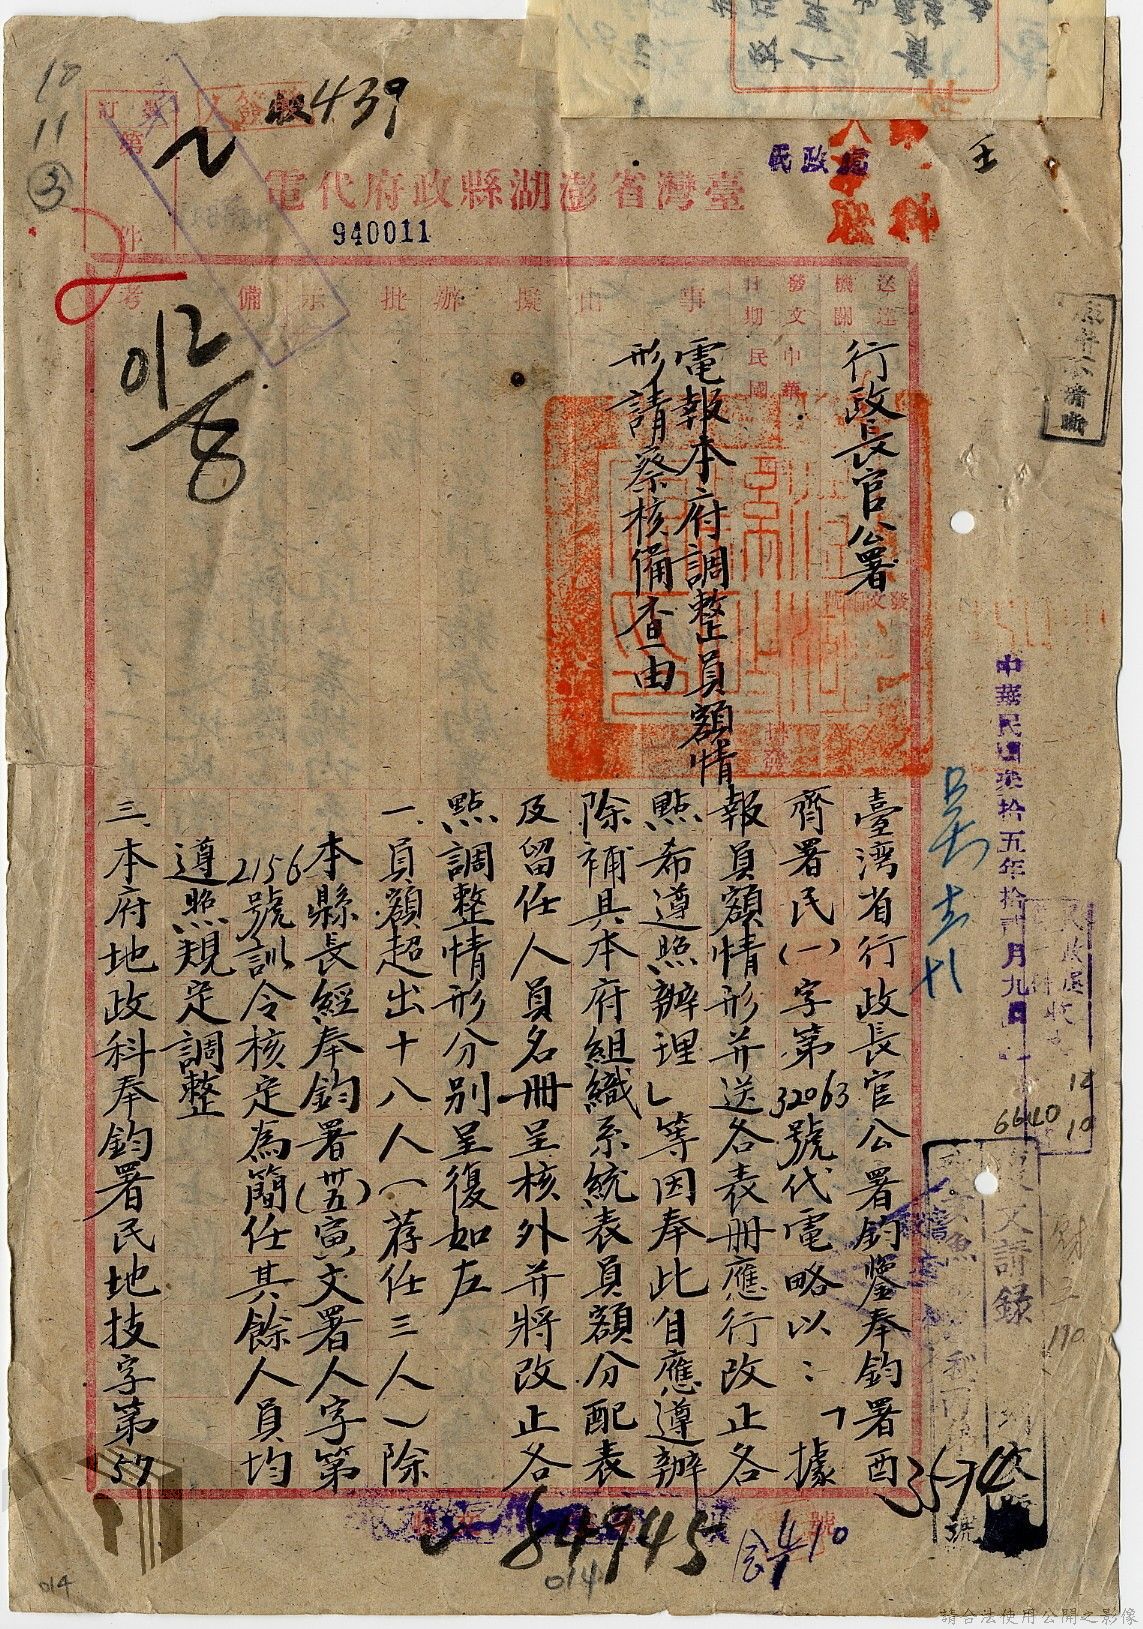 臺灣省澎湖縣政府代電
940011
收439
10
11
3
訂
第
件
民政處
王
送達機關
發文日期
事由
擬辦
批示
備考
中華民國
行政長官公署
電報本府調整員額情
形請察核備查由
臺湾省行政長官公署鈞鑒奉鈞署酉
齊署民(一)字第32063號代電略以：「據
報員額情形并送各表册應行改正各
點希遵照辦理」等因奉此自應遵辦
除補具本府組織系統表員額分配表
及留任人員名册呈核外并將改正各
點調整情形分别呈復如左
一、員額超出十八人(荐任三人)除
本縣長經奉鈞署(卅五)寅文署人字第
2156號訓令核定為簡任其餘人員均
遵照規定調整
三、本府地政科奉鈞署民地技字第57
中華民國叁拾五年拾貳月九日
6640
3574
84945
014
014
請合法使用公開之影像